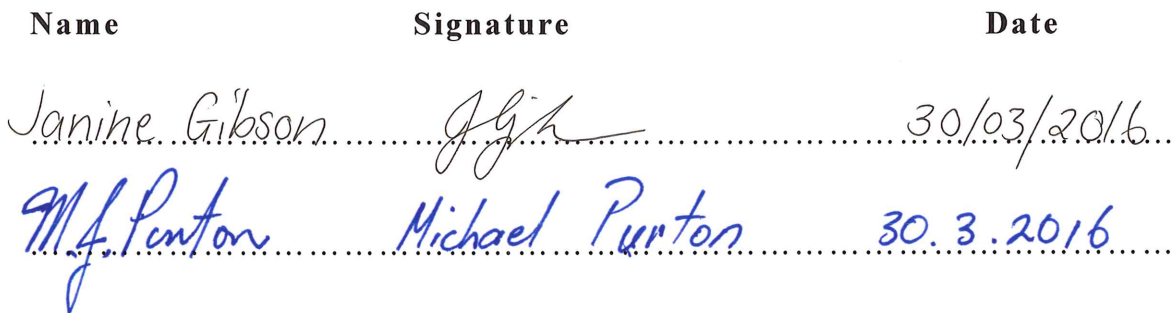 Name Signature Date
Janine Gibson JGib 30/03/2016
M.J. Purton Michael Purton 30.3.2016